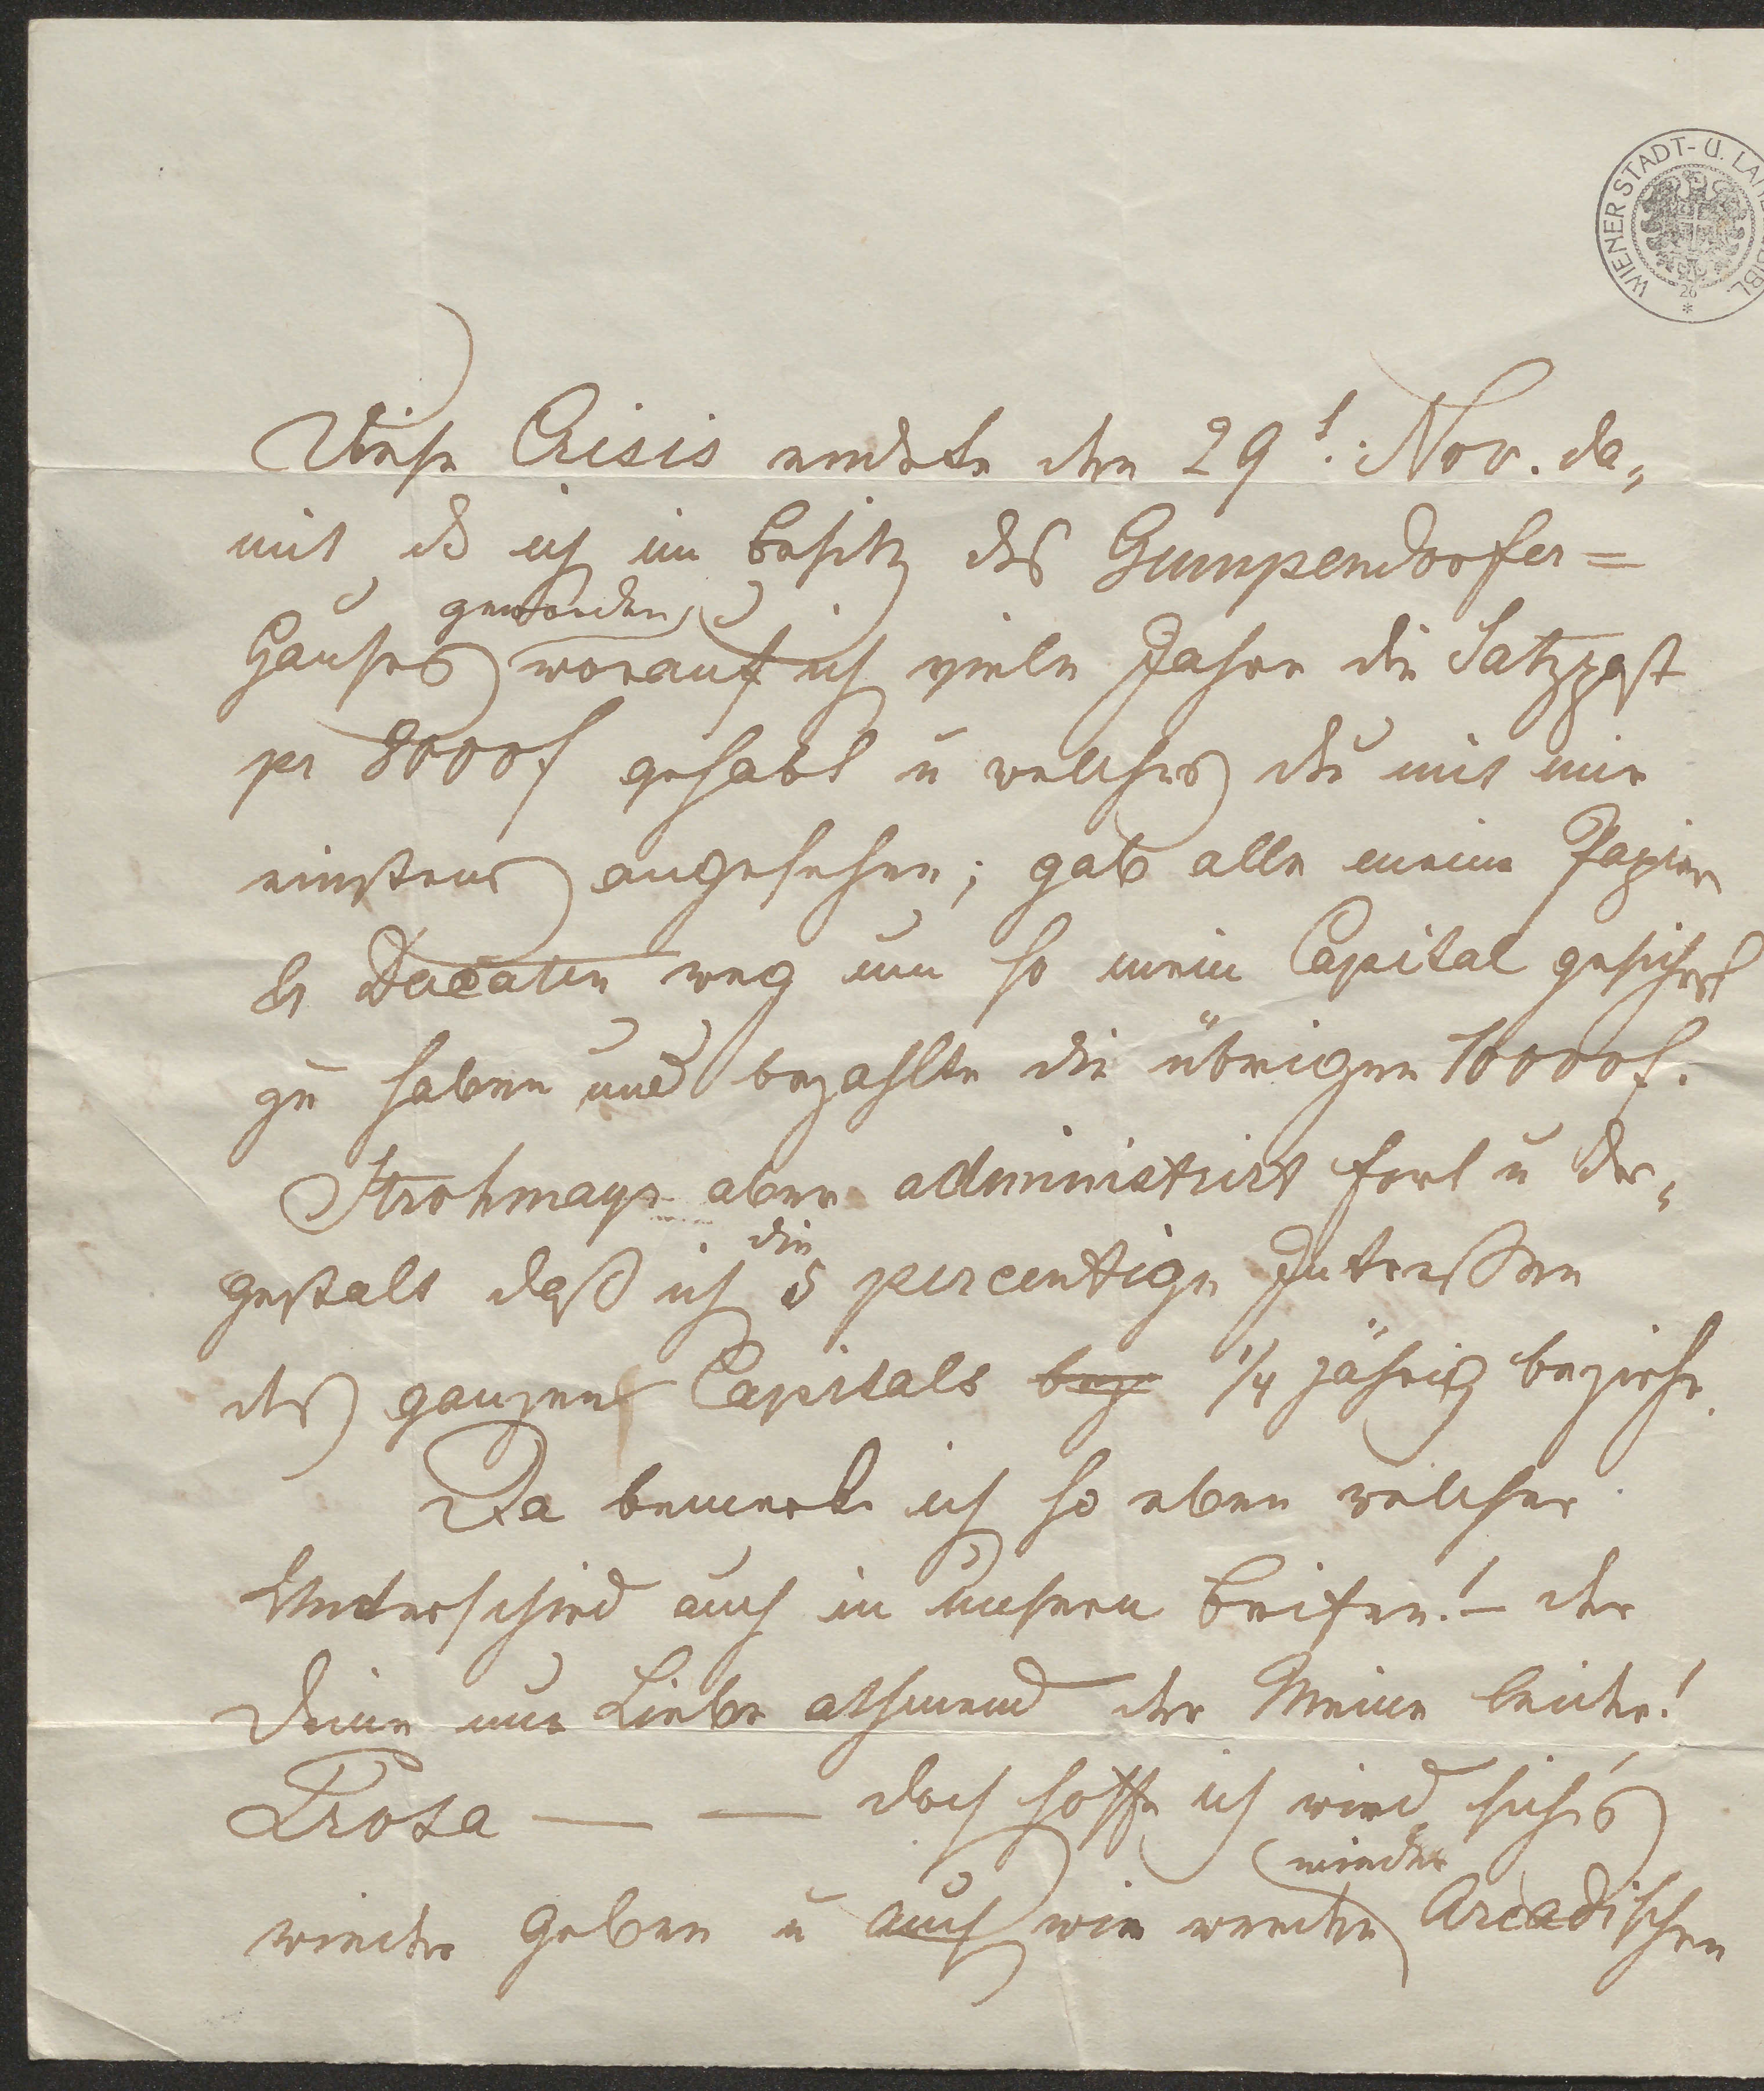 WIENER STADT- U. LA
BIBL.
26
Diese Crisis endete den 29t: Nov. da„
mit, daß ich im Besitz des Gumpendorfer=
geworden,
Hauses worauf ich viele Jahre die Satzpost
pr 8000f gehabt u welches du mit mir
einstens angesehen; gab alle meine Papier
& Ducaten weg um so mein Capital gesichert
zu haben und bezahlte die übrigen 10000f.
Strohmayr aber administrirt fort u der„
die
gestalt daß ich 5 percentige Interessen
des ganzen Capitals bez 1/4 jährig beziehe.
Da bemerke ich so eben welcher
Unterschied auch in unsern Briefen! – der
Deine nur Liebe athmend der Meine leider!
Prosa — — doch hoffe ich wird sich's
wieder
wieder geben u auch wir werden Arcadischen